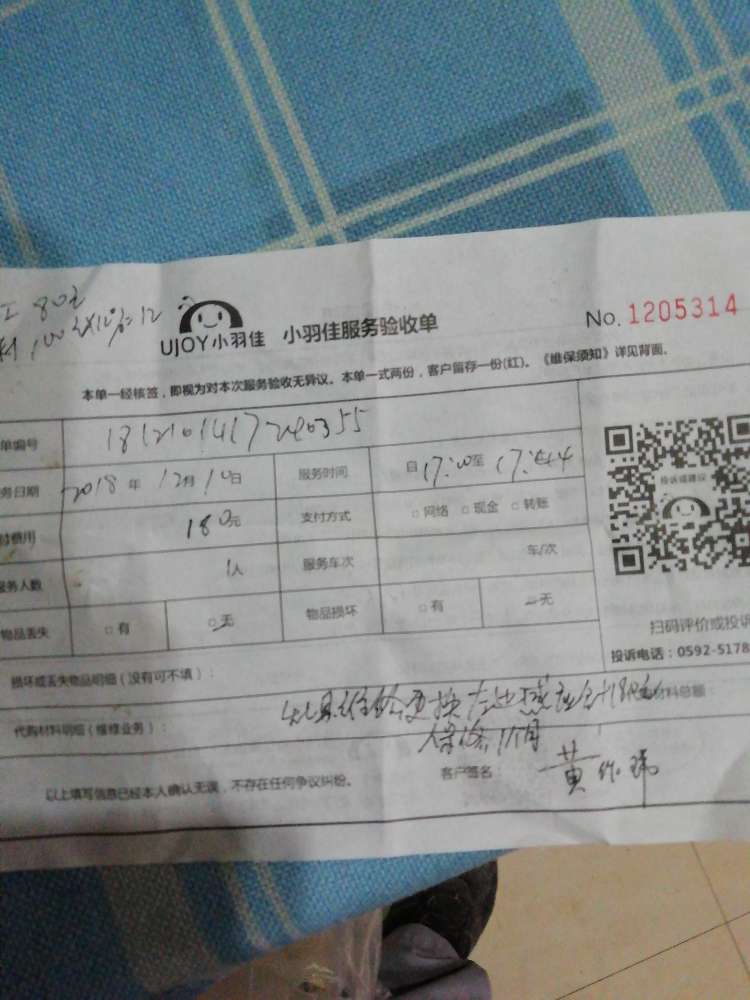 工 80元
UJOY小羽佳 小羽佳服务验收单 No. 1205314
本单一经核签，即视为对本次服务验收无异议。本单一式两份，客户留存一份(红)。《维保须知》详见背面。
单编号
务日期 2018 年 12月10日 服务时间 自17:00至17:44
付费用 180元 支付方式 □网络 □现金 □转账
服务人数 1人 服务车次 车/次
物品丢失 □有 □无 物品损坏 □有 无
投诉或建议
扫码评价或投诉
投诉电话：0592-5178
损坏或丢失物品明细（没有可不填）：
代购材料明细（维修业务）： 更换 材料总额：
保修1个月
以上填写信息已经本人确认无误，不存在任何争议纠纷。 客户签名： 黄